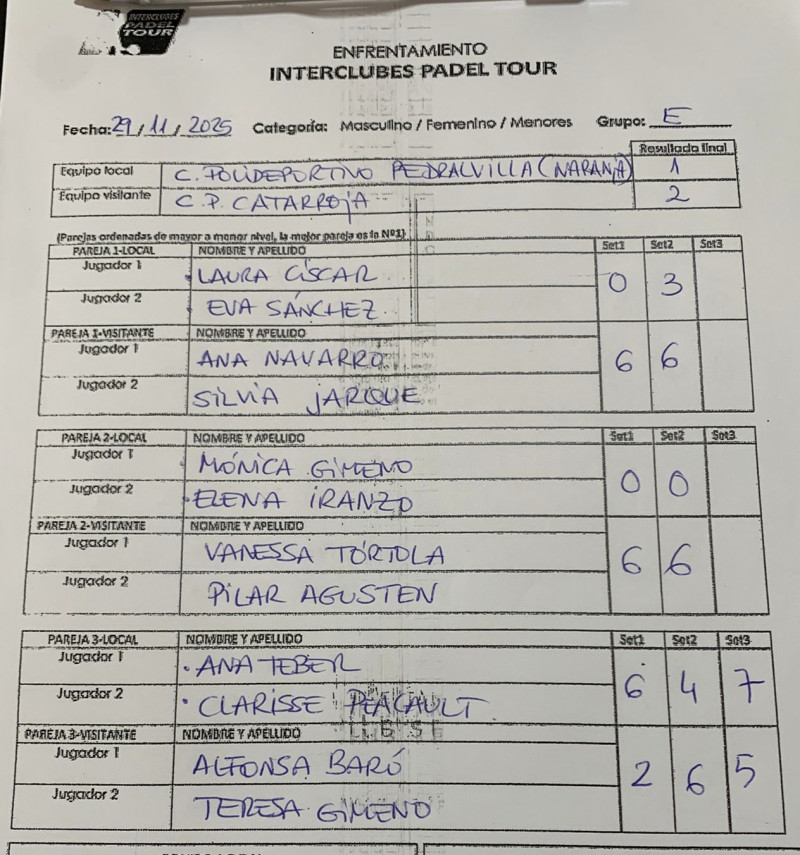 INTERCLUBES
PADEL
TOUR
ENFRENTAMIENTO
INTERCLUBES PADEL TOUR
Fecha: 29/11/2025 Categoría: Masculino / Femenino / Menores Grupo: E
Resultado final
Equipo local C. POLIDEPORTIVO PEDRALVILLA (NARANJA) 1
Equipo visitante C.P. CATARROJA 2
(Parejas ordenadas de mayor a menor nivel, la mejor pareja es la Nº1)
PAREJA 1-LOCAL NOMBRE Y APELLIDO Set1 Set2 Set3
Jugador 1 LAURA CÍSCAR 0 3
Jugador 2 EVA SÁNCHEZ
PAREJA 1-VISITANTE NOMBRE Y APELLIDO
Jugador 1 ANA NAVARRO 6 6
Jugador 2 SILVIA JARQUE
PAREJA 2-LOCAL NOMBRE Y APELLIDO Set1 Set2 Set3
Jugador 1 MÓNICA GIMENO 0 0
Jugador 2 ELENA IRANZO
PAREJA 2-VISITANTE NOMBRE Y APELLIDO
Jugador 1 VANESSA TÓRTOLA 6 6
Jugador 2 PILAR AGUSTEN
PAREJA 3-LOCAL NOMBRE Y APELLIDO Set1 Set2 Set3
Jugador 1 ANA TEBER 6 4 7
Jugador 2 CLARISSE
PAREJA 3-VISITANTE NOMBRE Y APELLIDO
Jugador 1 ALFONSA BARÓ 2 6 5
Jugador 2 TERESA GIMENO